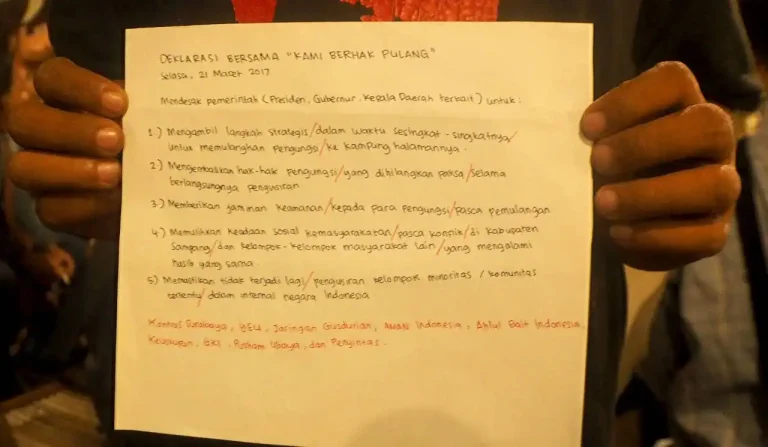 DEKLARASI BERSAMA "KAMI BERHAK PULANG"
Selasa, 21 Maret 2017
Mendesak pemerintah (Presiden, Gubernur, Kepala Daerah terkait) untuk :
1.) Mengambil langkah strategis/dalam waktu sesingkat-singkatnya/
untuk memulangkan pengungsi/ke kampung halamannya.
2.) Mengembalikan hak-hak pengungsi/yang dihilangkan paksa/selama
berlangsungnya pengusiran
3.) Memberikan jaminan keamanan/kepada para pengungsi/pasca pemulangan
4.) Memulihkan keadaan sosial kemasyarakatan/pasca konflik/di kabupaten
Sampang/dan kelompok-kelompok masyarakat lain/yang mengalami
nasib yang sama.
5.) Memastikan tidak terjadi lagi/pengusiran kelompok minoritas / komunitas
tertentu/dalam internal negara Indonesia
Kontras Surabaya, Jaringan Gusdurian, Indonesia, Ahlul Bait Indonesia,
GKI, Pusham Ubaya, dan Penyintas.